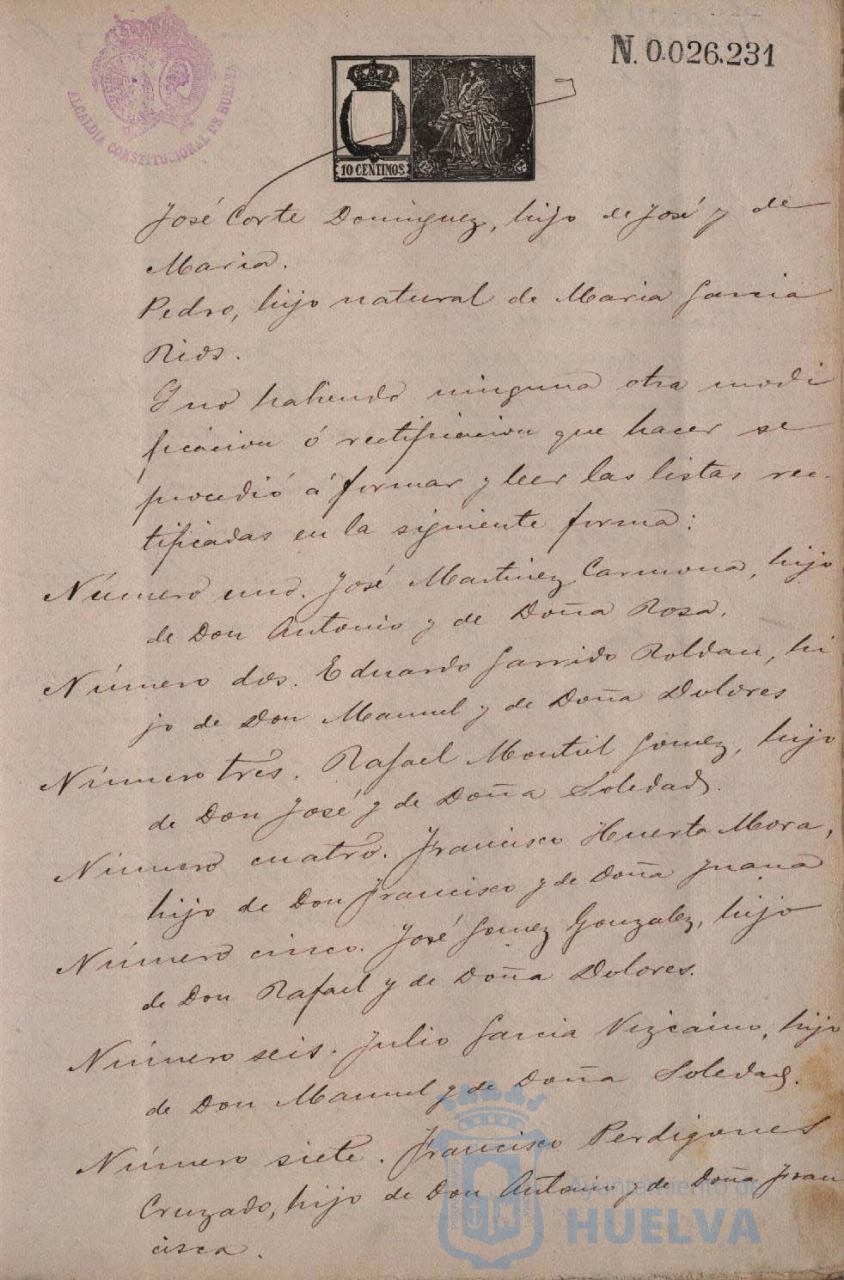 N. 0.026.231
ALCALDIA CONSTITUCIONAL DE HUELVA
10 CENTIMOS
José Corte Dominguez, hijo de José y de
Maria.
Pedro, hijo natural de Maria Garcia
Rios.
Y no habiendo ninguna otra modi
ficacion ó rectificacion que hacer se
procedió á formar y leer las listas rec-
tificadas en la siguiente forma:
Número uno. José Martinez Carmona, hijo
de Don Antonio y de Doña Rosa.
Número dos. Eduardo Garrido Roldan, hi
jo de Don Manuel y de Doña Dolores
Número tres. Rafael Montiel Gomez, hijo
de Don José y de Doña Soledad.
Número cuatro. Francisco Huerta Mora,
hijo de Don Francisco y de Doña Juana
Número cinco. José Gomez Gonzalez, hijo
de Don Rafael y de Doña Dolores.
Número seis. Julio Garcia Vizcaino, hijo
de Don Manuel y de Doña Soledad.
Número siete. Francisco Perdigones
Cruzado, hijo de Don Antonio y de Doña Fran
cisca.
Ayuntamiento de
HUELVA